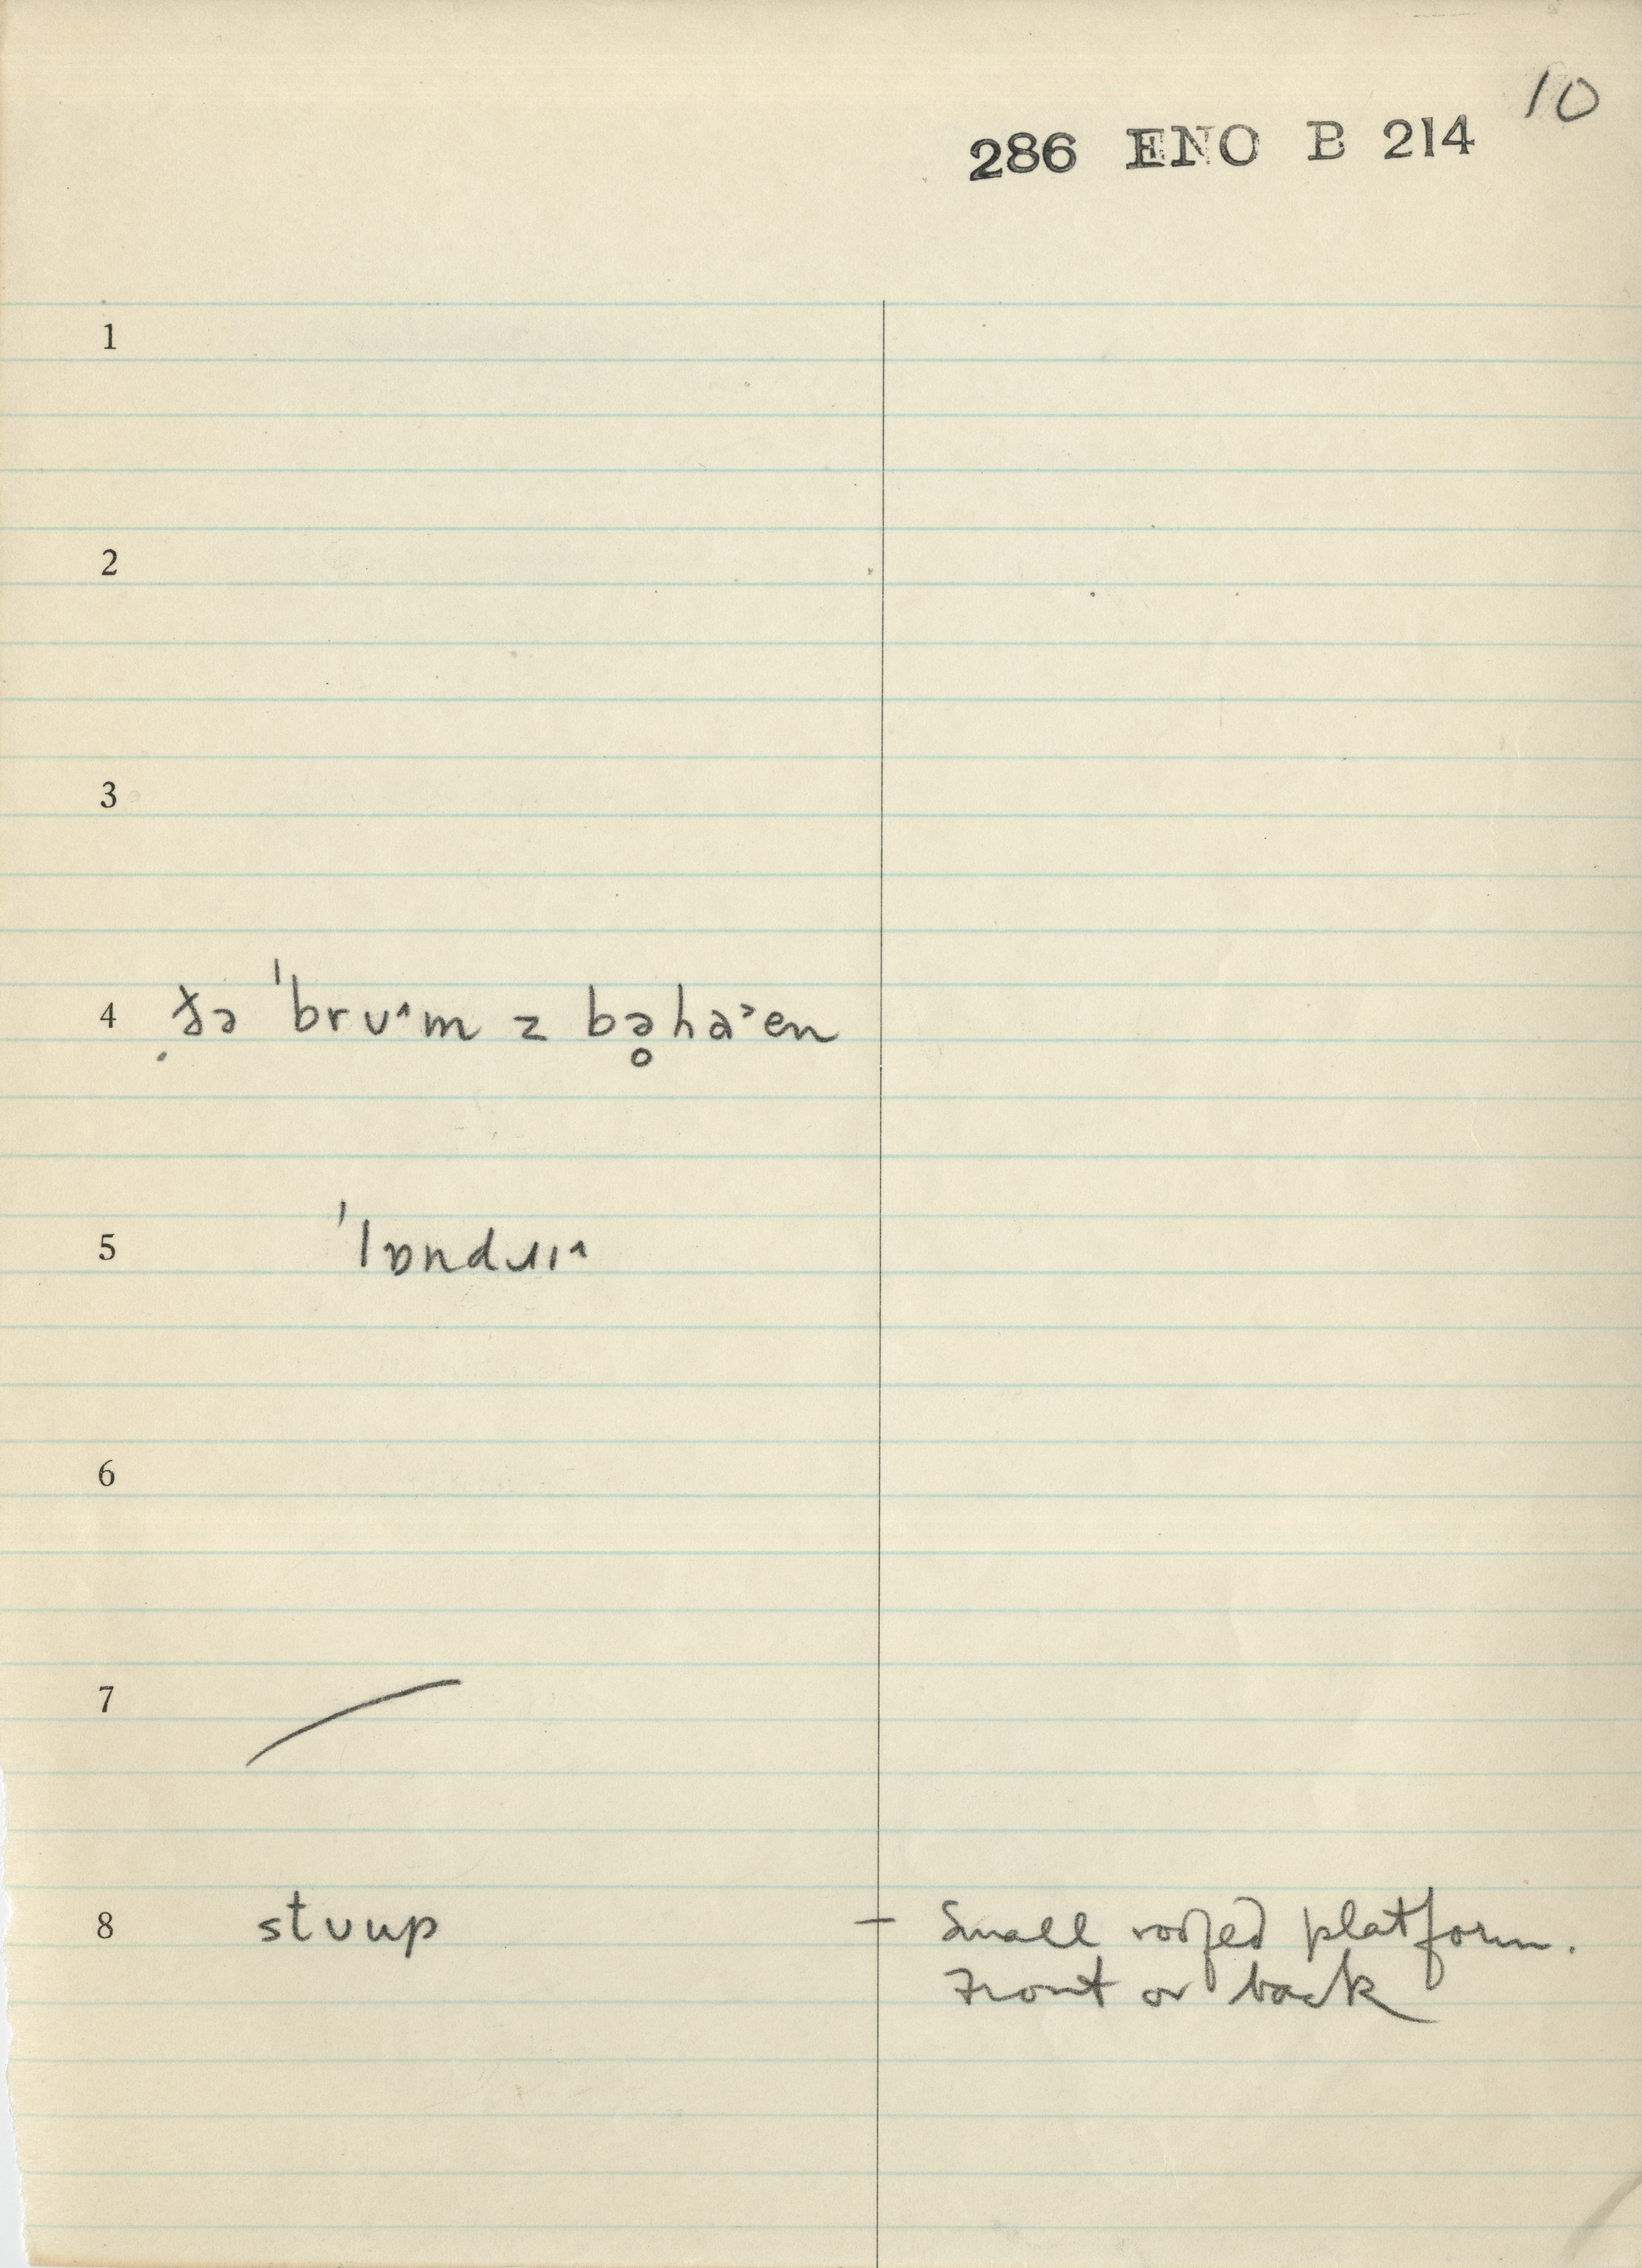 10
286 ENO B 214
1
2
3
4 ðə ˈbrʊ˄m z bə̥ha˃en
5 ˈlɒndɹɪ˄
6
7
8 stʊup – Small roofed platform.
Front or back